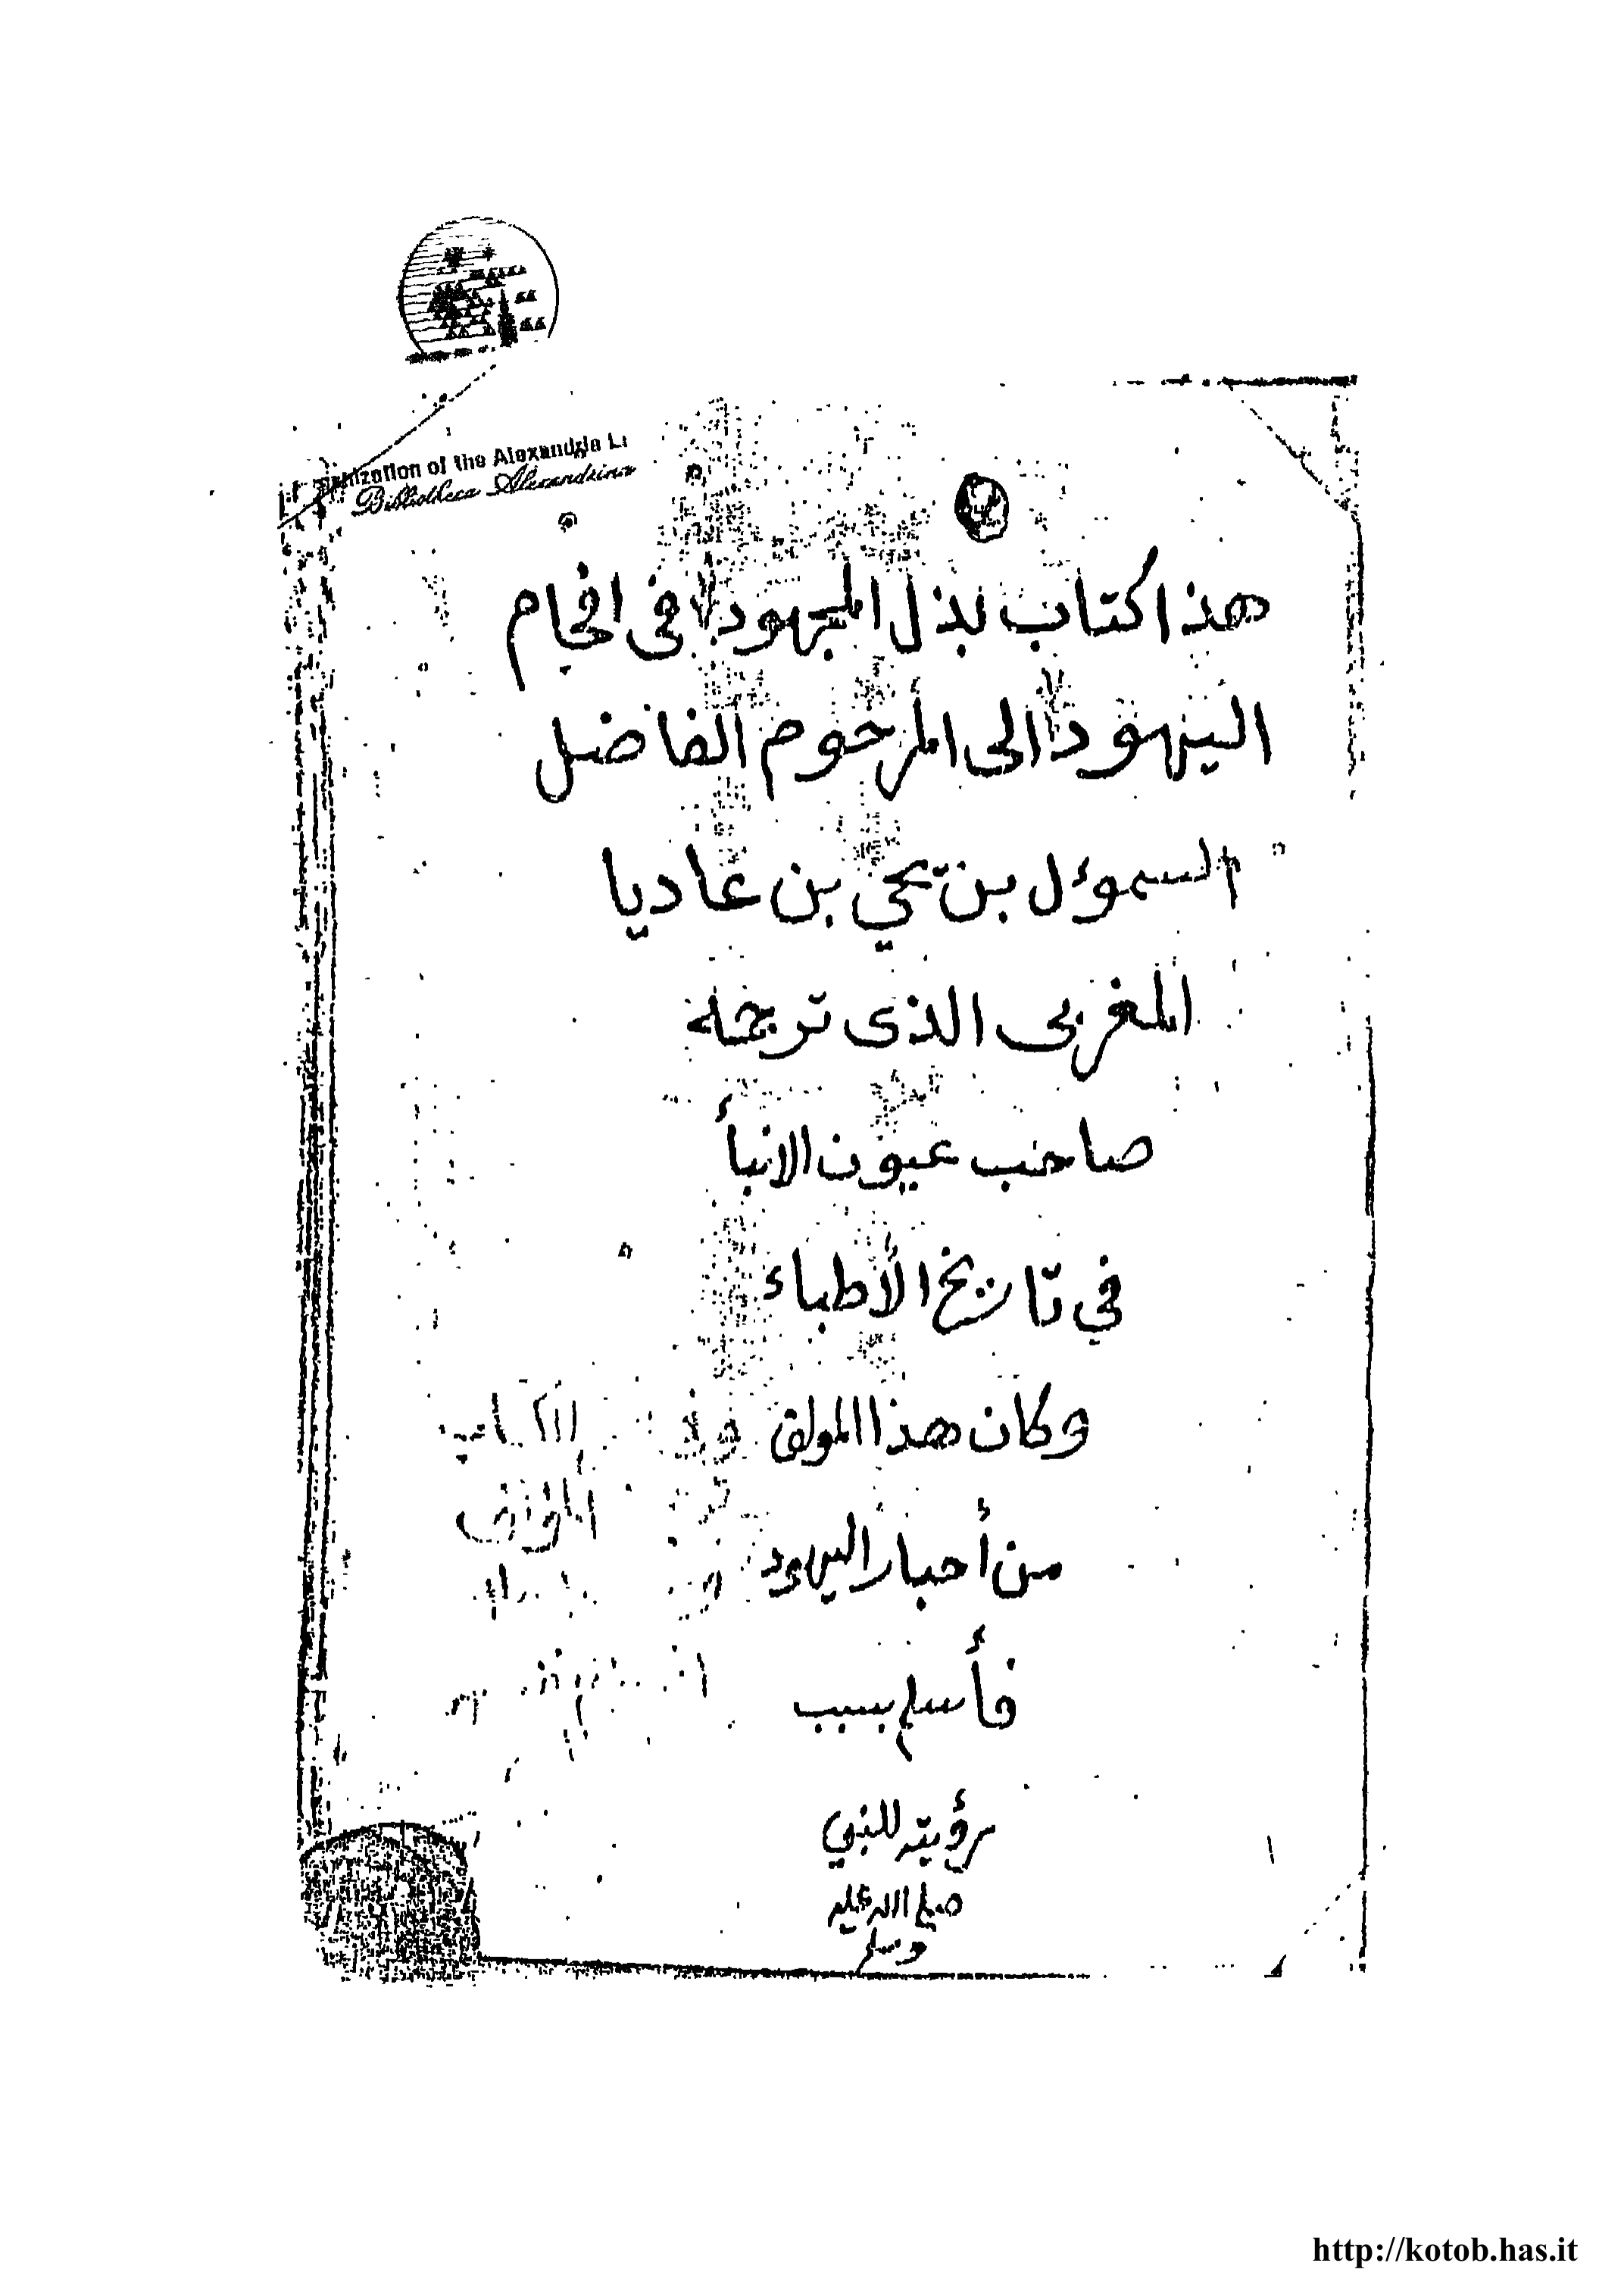 nization of the Alexandria Li
Bibliotheca Alexandrina
هذا كتاب بذل المجهود في افحام
اليهود الى المرحوم الفاضل
السموءل بن يحي بن عاديا
المغربى الذى ترجمه
صاحب عيون الانبأ
في تاريخ الأطباء
وكان هذا المولف
الكتاب
من أحبار اليهود
فأسلم بسبب
رؤيته للنبي
صلى الله عليه
وسلم
http://kotob.has.it